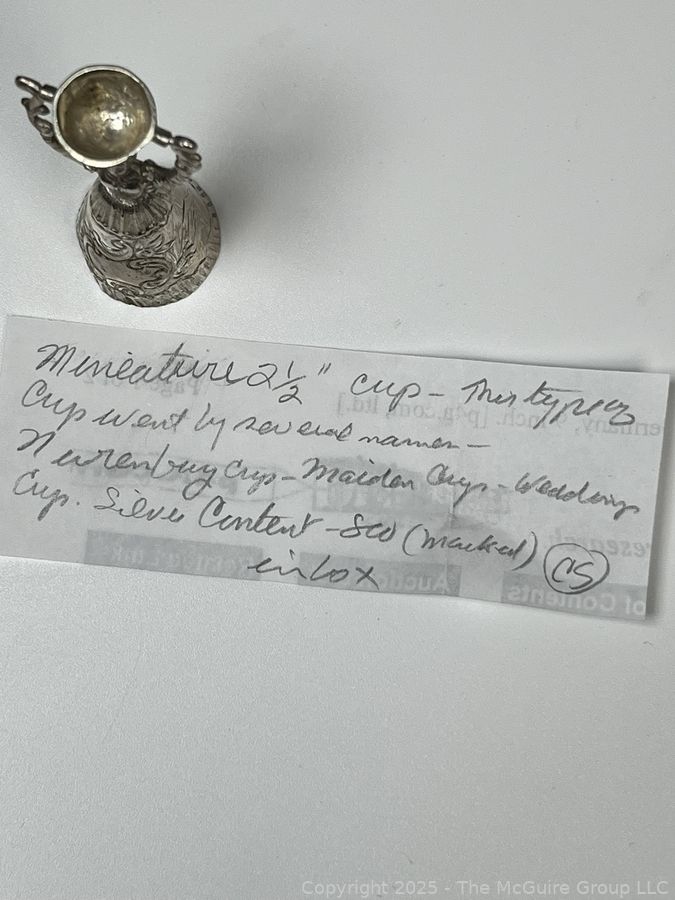 Mineature 2 1/2" cup - This type of
Cup went by several names -
Nurenburg Cup - Maiden Cup - Wedding
Cup. Silver Content - 800 (marked) CS
in box
Copyright 2025 - The McGuire Group LLC